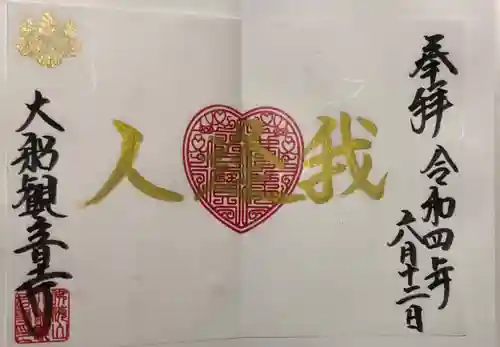 奉拝
令和四年
六月十二日
我
人
大船観音寺